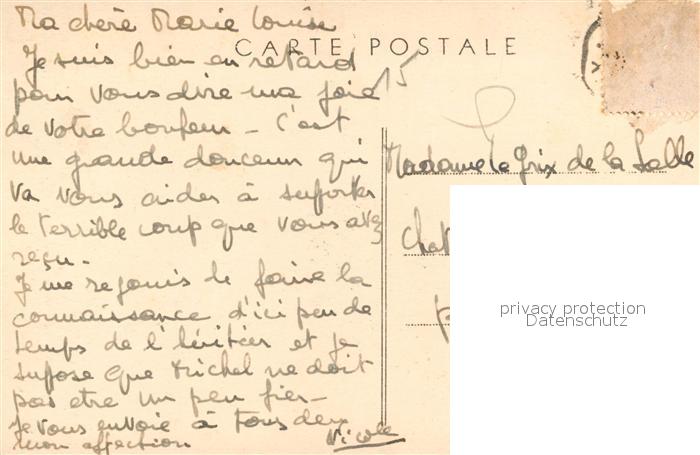 Ma chère Marie Louise
CARTE POSTALE
Je suis bien en retard
15
pour vous dire ma joie
de votre bonheur – C'est
une grande douceur qui
va vous aider à suporter
le terrible coup que vous avez
reçu –
Je me rejouis de faire la
connaissance d'ici peu de
temps de l'héritier et je
supose que Michel ne doit
pas etre un peu fier –
Je vous envoie à tous deux
mon affection
Nicole
Madame Le Grix de la Salle
Chat
privacy protection
Datenschutz